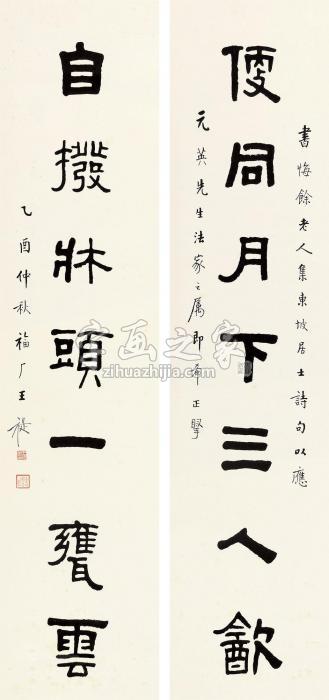 書悔餘老人集東坡居士詩句以應
便同月下三人㱃
元英先生法家之屬即希正
自撥牀頭一甕雲
乙酉仲秋福厂王禔
字画之家
zihuazhijia.com